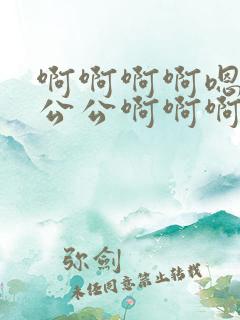 啊啊啊啊嗯
公公啊啊啊
弥剑
未经同意禁止转载